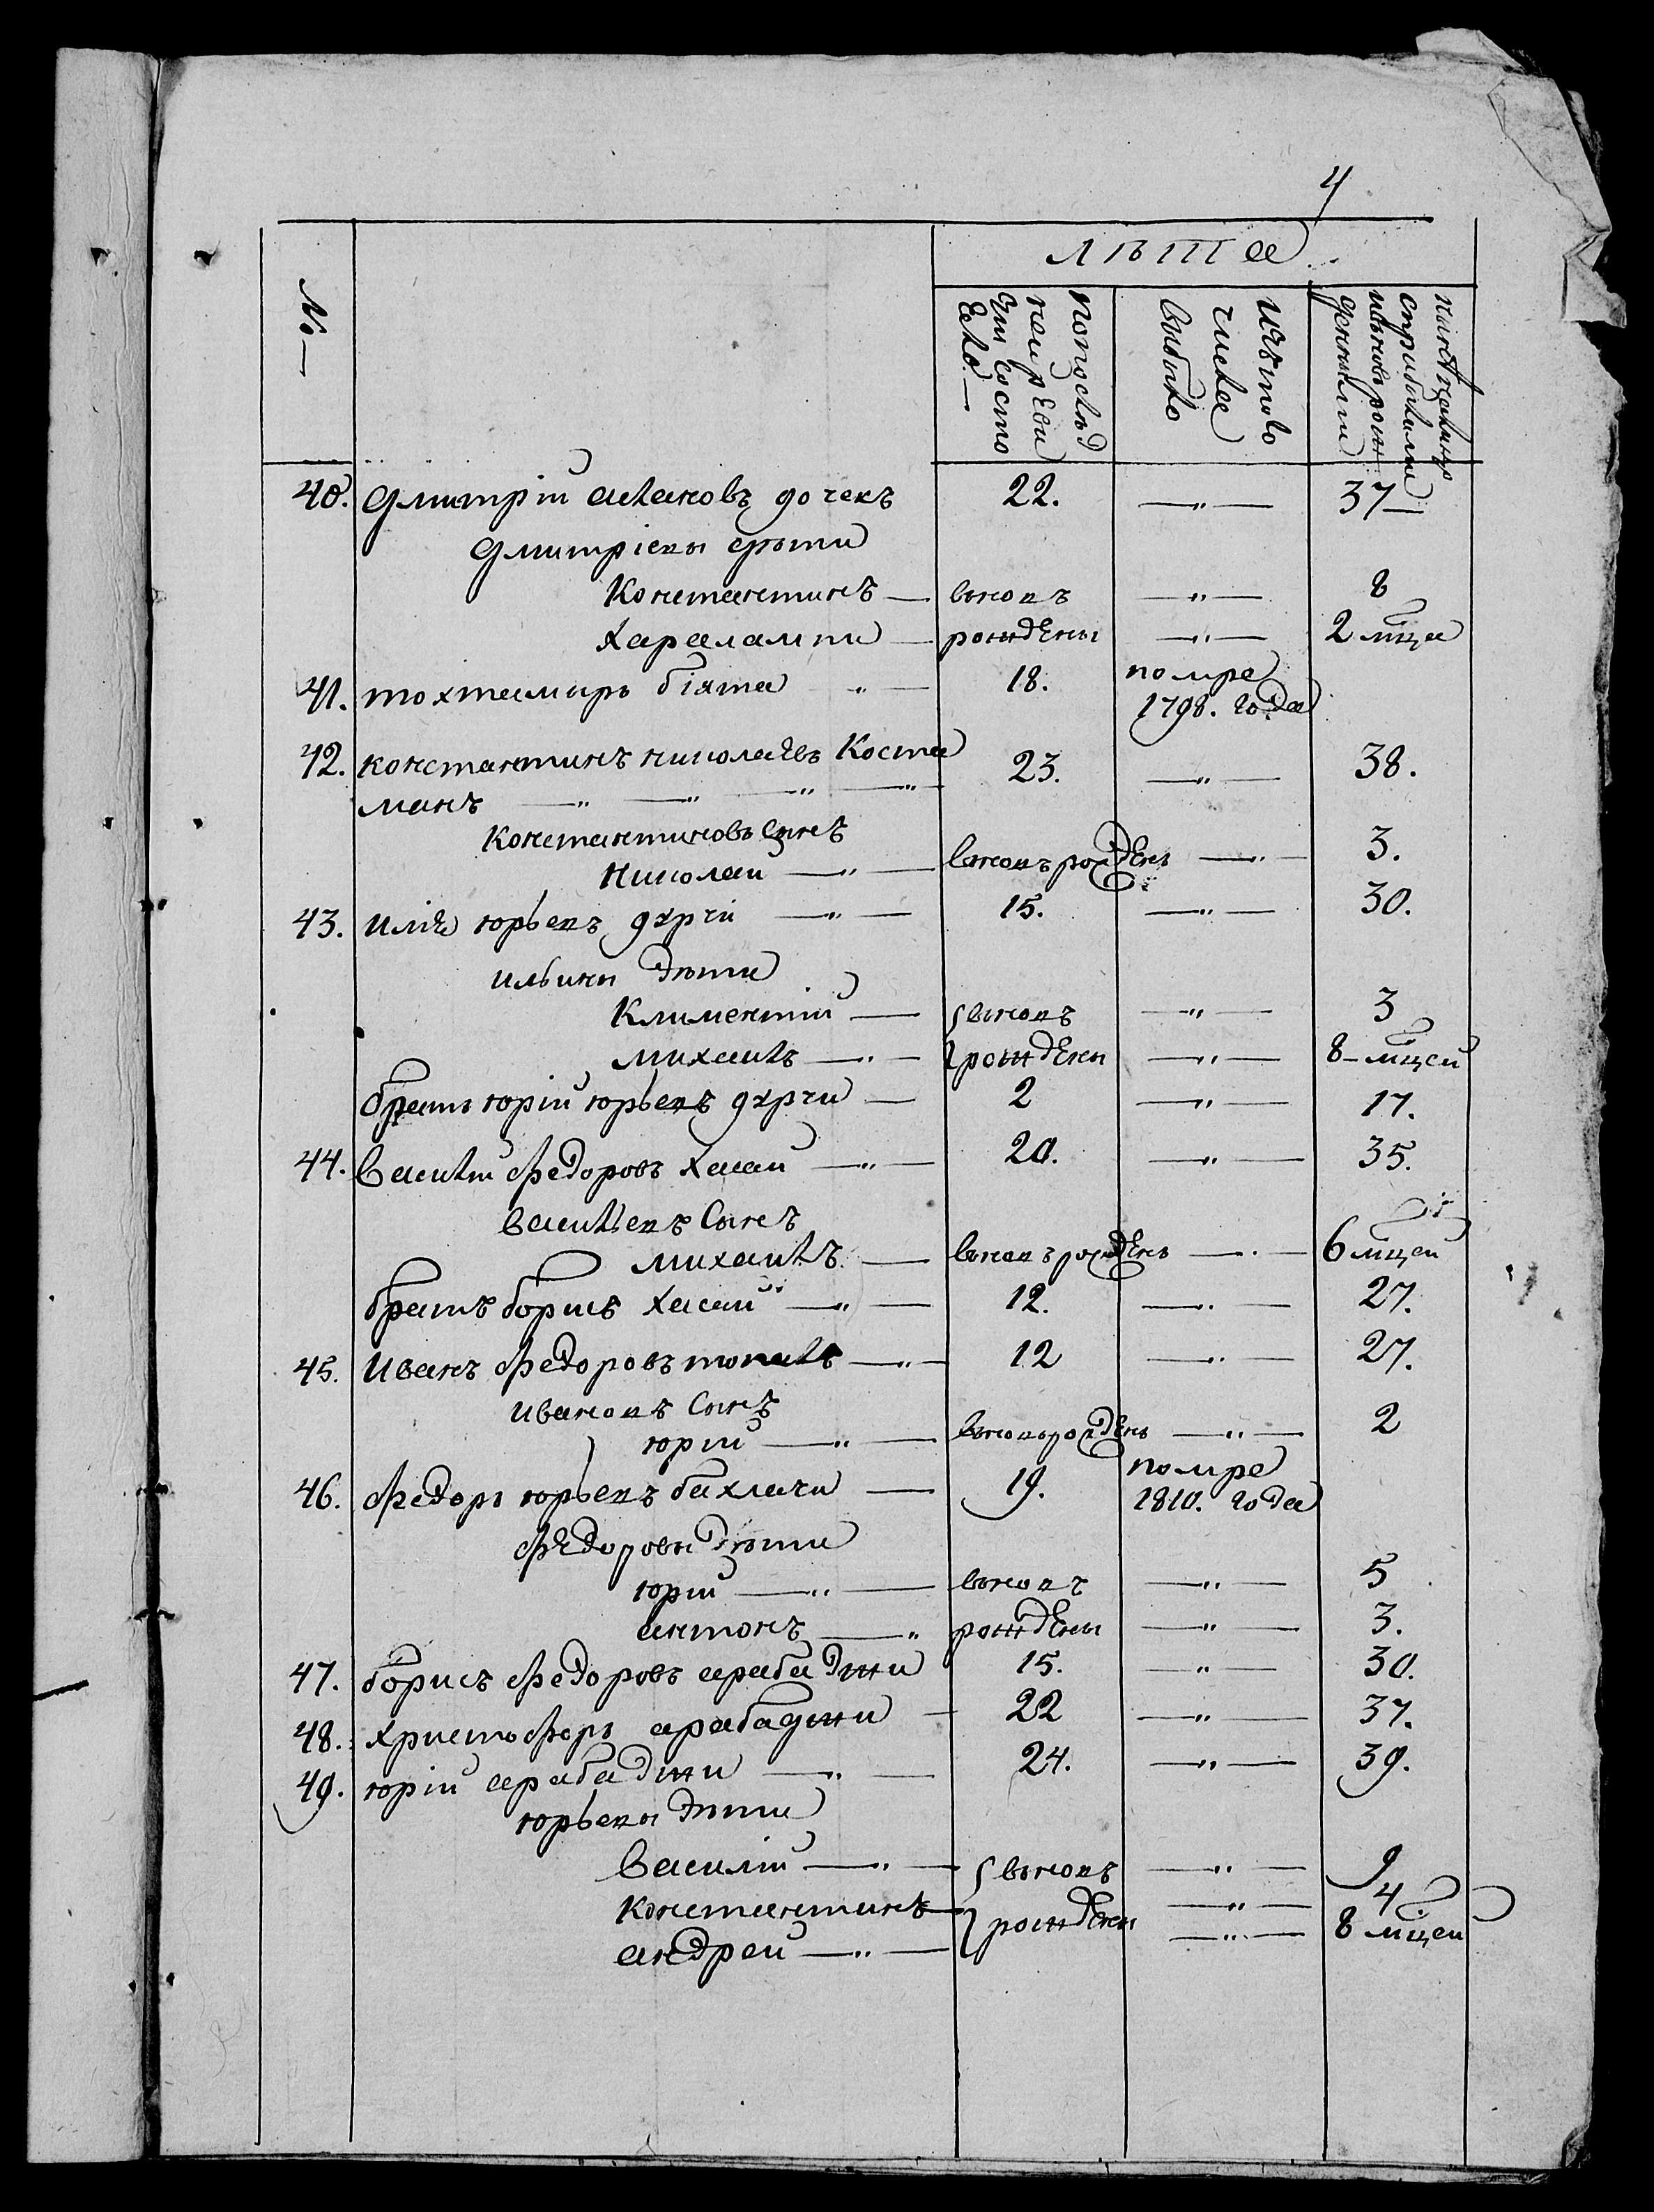 4
№
лѣта
попослѣд
ней реви
зіи состо
яло
изътово
числа
выбыло
ныне налицо
сприбылыми
ивновь рож
денными
40. Дмитрій аслановъ дочекъ 22. —„— 37—
Дмитріевы дѣти
Константинъ — вновъ —„— 8
Харалампи — рождены —„— 2 мца
41. тохтамыръ біята „— 18. помре
1798. года
42. константинъ николаевъ Коста 23. —„— 38.
манъ —„ —„ —„ —„
Константиновъ Сынъ
николаи —„— вновъ рожденъ —„— 3.
43. илія юрьевъ дхрчи —„— 15. —„— 30.
ильины дѣти
Климентий — вновъ —„— 3
михаилъ —„— рождены —„— 8-мцей
братъ юрій юрьевъ дхрчи — 2 —„— 17.
44. василій Федоровъ хасаи —„— 20. —„— 35.
васильевъ Сынъ
михаилъ — вновъ рожденъ —„— 6 мцей
братъ борисъ хасаи —„— 12. —„— 27.
45. Иванъ Федоровъ топалъ —„— 12 —„— 27.
ивановъ Сынъ
юрии —„— вновъ рожденъ —„— 2
46. Федоръ юрьевъ бахчачи — 19. помре
1810. года
Федоровы дѣти
юрии —„— вновъ —„— 5
антонъ —„ рождены —„— 3.
47. борисъ Федоровъ арабаджи 15. —„— 30.
48. христофоръ арабаджи — 22 —„— 37.
49. юрій арабаджи —„— 24. —„— 39.
юрьевы дѣти
василій —„— вновъ —„— 9
Константинъ— рождены —„— 4
андреи —„— —„— 8 мцей